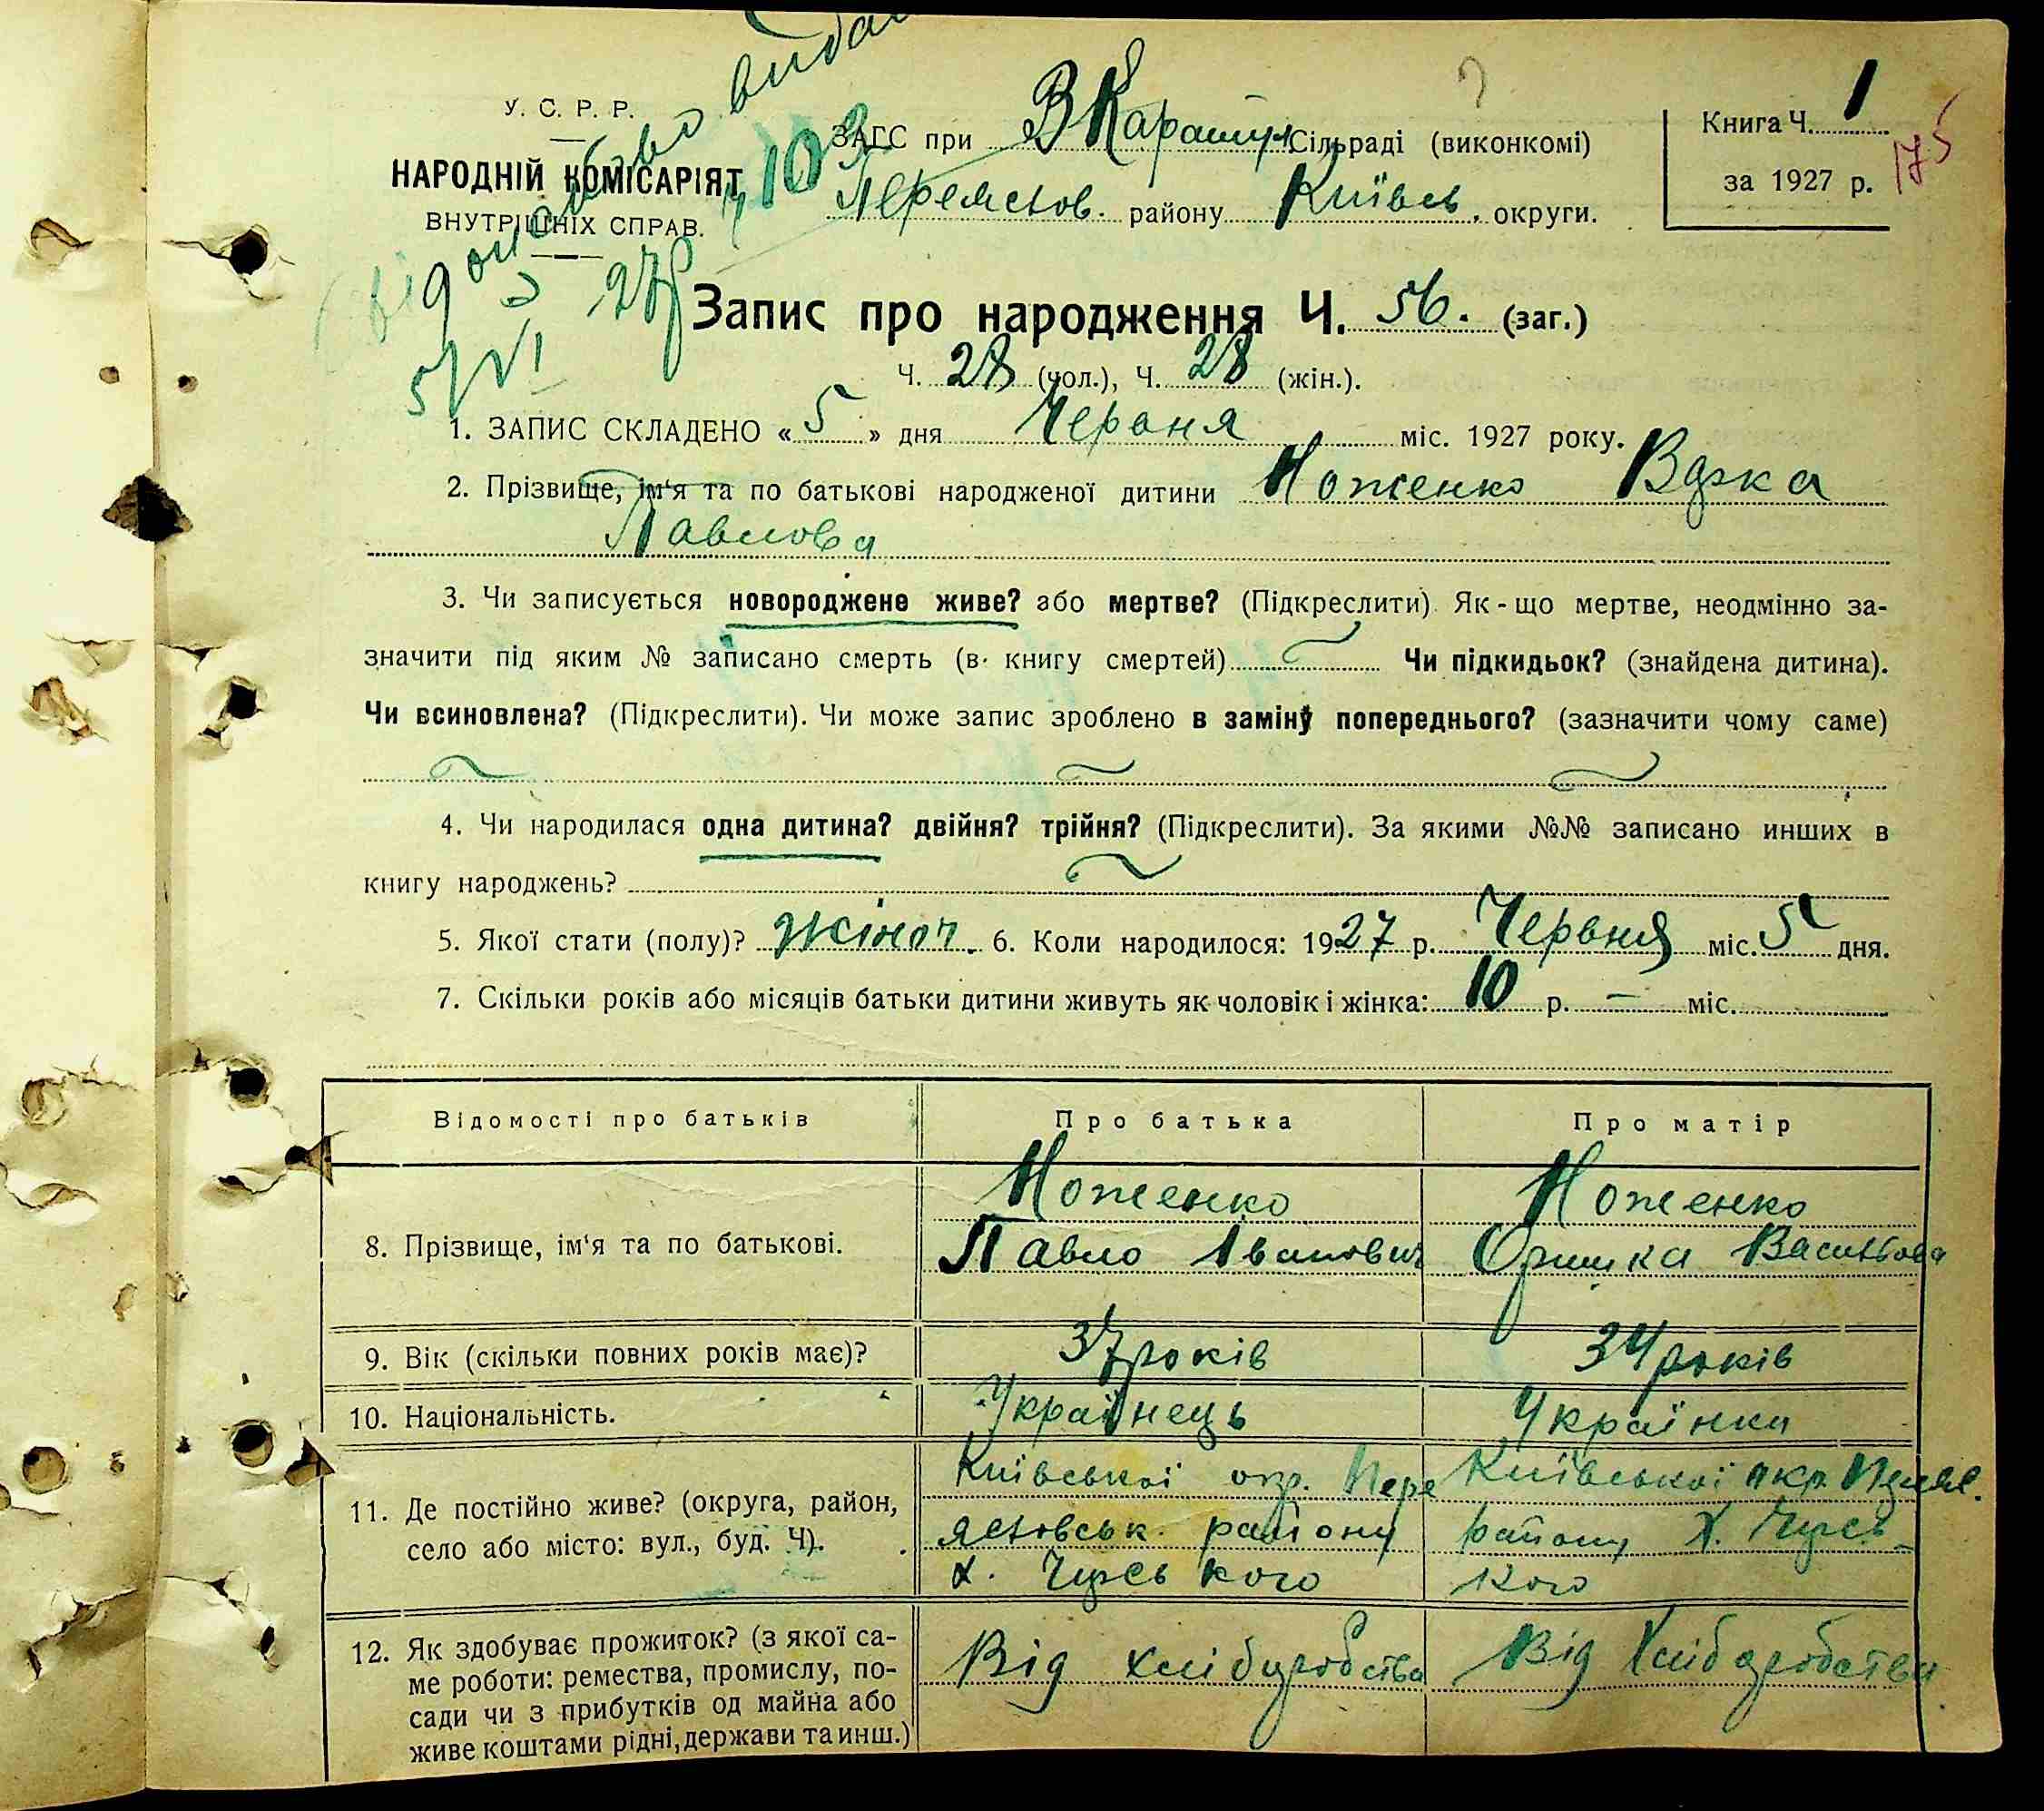 У. С. Р. Р.
НАРОДНІЙ КОМІСАРІЯТ
ВНУТРІШНІХ СПРАВ.
ЗАГС при В Каратул Сільраді (виконкомі)
району Київсь. округи.
Книга Ч. 1
за 1927 р.
175
5/VI 27р
Запис про народження Ч. 56. (заг.)
Ч. 28 (чол.), Ч. 28 (жін.).
1. ЗАПИС СКЛАДЕНО «5» дня Червня міс. 1927 року.
2. Прізвище, ім'я та по батькові народженої дитини Ноженко
Павлова
3. Чи записується новороджене живе? або мертве? (Підкреслити). Як-що мертве, неодмінно за-
значити під яким № записано смерть (в книгу смертей) Чи підкидьок? (знайдена дитина).
Чи всиновлена? (Підкреслити). Чи може запис зроблено в заміну попереднього? (зазначити чому саме)
4. Чи народилася одна дитина? двійня? трійня? (Підкреслити). За якими №№ записано инших в
книгу народжень?
5. Якої стати (полу)? жіноч. 6. Коли народилося: 1927 р. Червня міс. 5 дня.
7. Скільки років або місяців батьки дитини живуть як чоловік і жінка: 10 р. — міс.
Відомості про батьків Про батька Про матір
8. Прізвище, ім'я та по батькові.
Ноженко
Павло Іванович
Ноженко
Оришка Васильова
9. Вік (скільки повних років має)? 37 років 34 років
10. Національність. Українець Українка
11. Де постійно живе? (округа, район,
село або місто: вул., буд. Ч).
Київської окр. Пере
яславськ. району
х.
Київської окр.
району Х.
12. Як здобуває прожиток? (з якої са-
ме роботи: ремества, промислу, по-
сади чи з прибутків од майна або
живе коштами рідні, держави та инш.)
Від хліборобства
Від Хліборобства